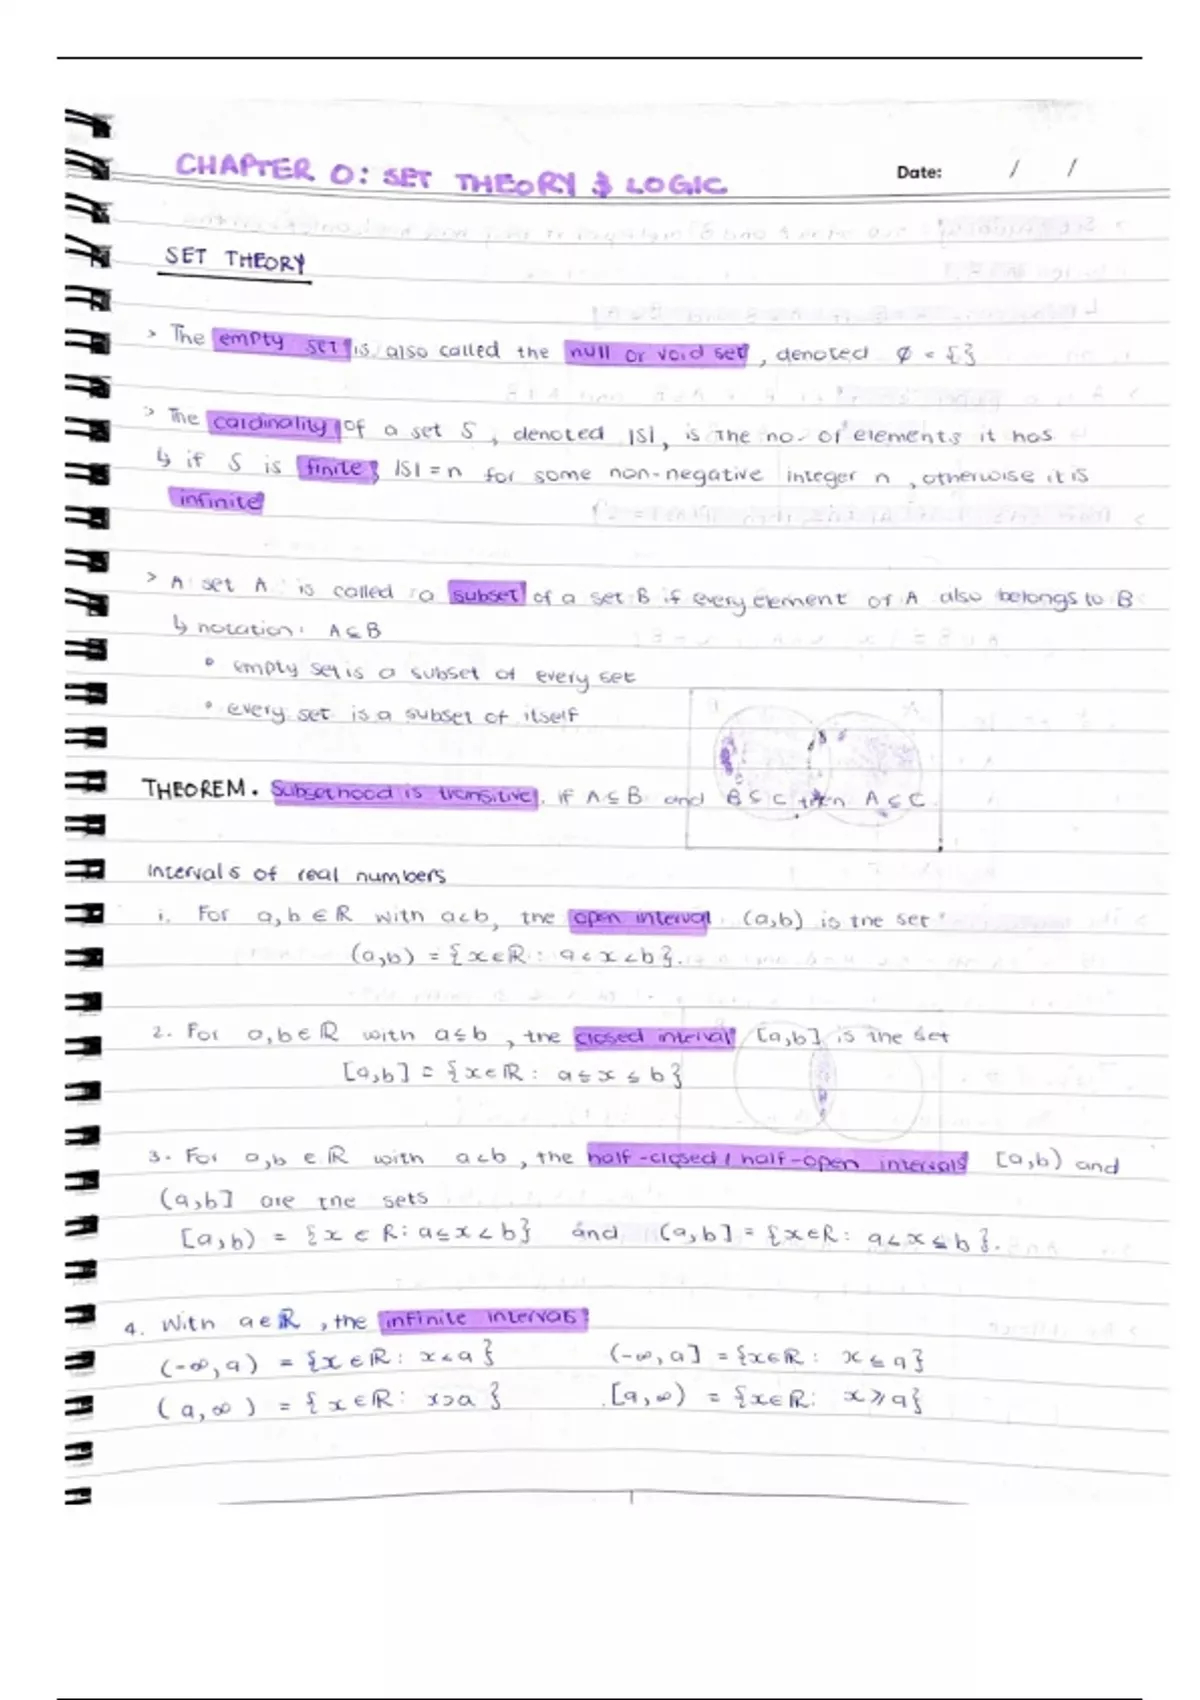 CHAPTER 0: SET THEORY & LOGIC
Date: / /
SET THEORY
> The empty set is also called the null or void set, denoted ∅ = {}
> The cardinality of a set S, denoted |S|, is the no. of elements it has
↳ if S is finite, |S| = n for some non-negative integer n, otherwise it is
infinite
> A set A is called a subset of a set B if every element of A also belongs to B
↳ notation: A ⊆ B
• empty set is a subset of every set
• every set is a subset of itself
THEOREM. Subsethood is transitive. If A ⊆ B and B ⊆ C then A ⊆ C
Intervals of real numbers
1. For a, b ∈ ℝ with a<b, the open interval (a,b) is the set
(a,b) = {x ∈ ℝ : a < x < b}.
2. For a, b ∈ ℝ with a≤b, the closed interval [a,b] is the set
[a,b] = {x ∈ ℝ : a ≤ x ≤ b}
3. For a, b ∈ ℝ with a<b, the half-closed / half-open intervals [a,b) and
(a,b] are the sets
[a,b) = {x ∈ R: a ≤ x < b} and (a,b] = {x ∈ R: a < x ≤ b}.
4. With a ∈ ℝ, the infinite intervals
(-∞, a) = {x ∈ ℝ : x < a} (-∞, a] = {x ∈ ℝ : x ≤ a}
(a, ∞) = {x ∈ ℝ : x > a} [a, ∞) = {x ∈ ℝ: x ⩾ a}